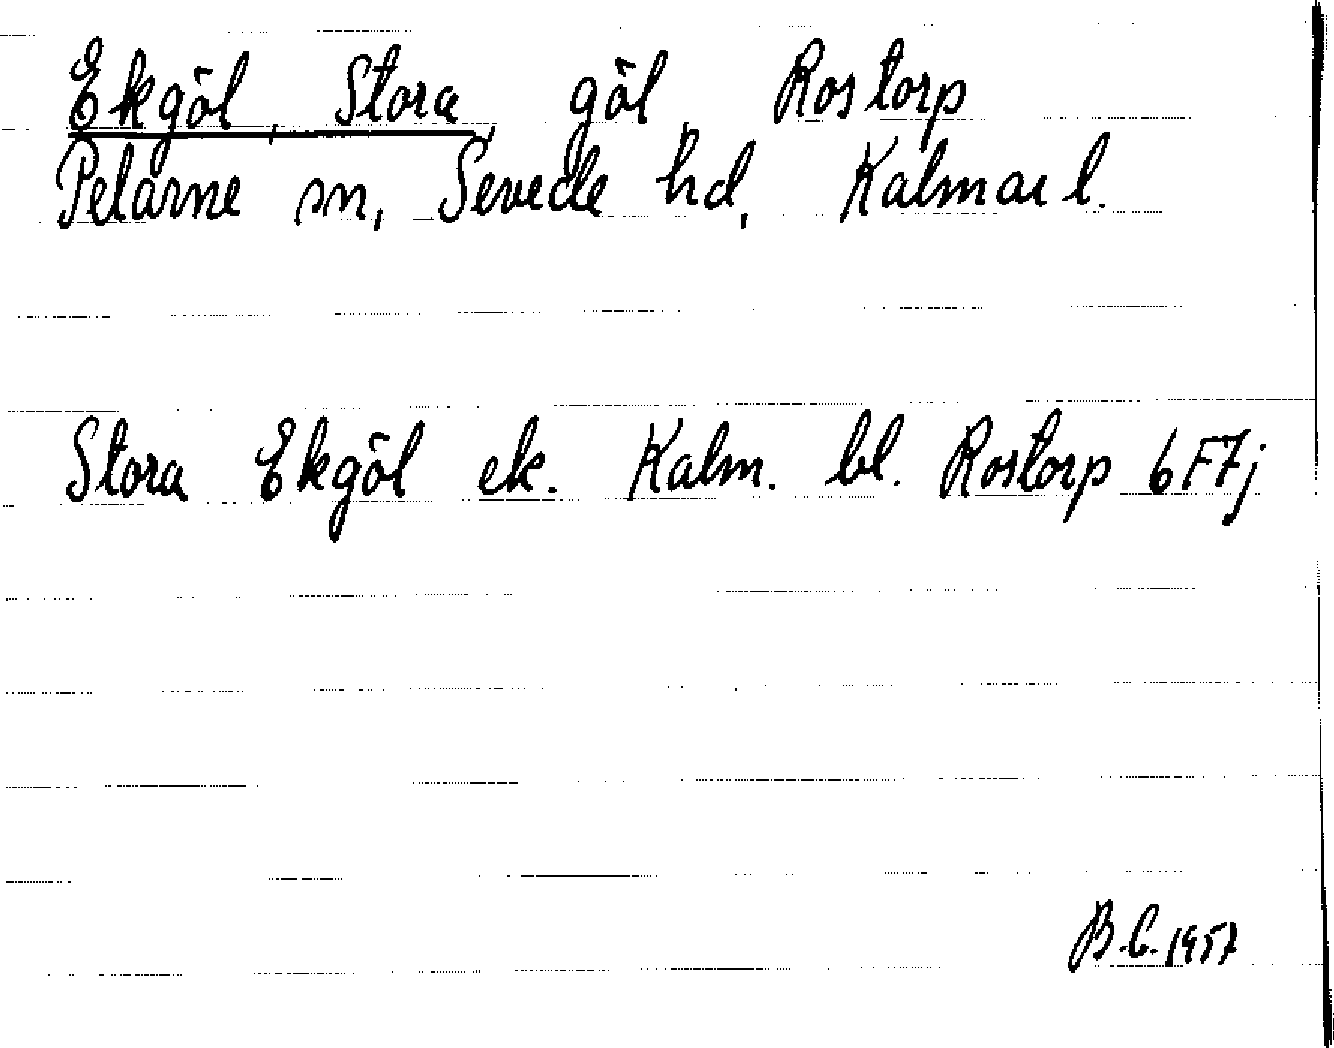 Ekgöl, Stora, göl, Rostorp
Pelarne sn, Sevede hd, Kalmar l.
Stora Ekgöl ek. Kalm. bl. Rostorp 6F7j
B.C. 1957